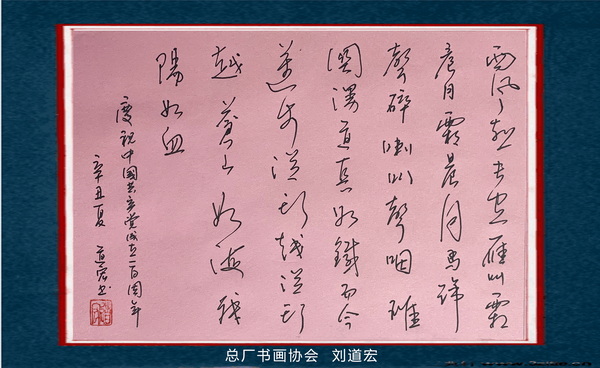 西风烈长空雁叫霜
晨月霜晨月马蹄
聲碎喇叭聲咽雄
関漫道真如鐵而今
邁步從頭越從頭
越蒼山如海残
陽如血
慶祝中国共产党成立一百周年
辛丑夏 道宏书
总厂书画协会 刘道宏